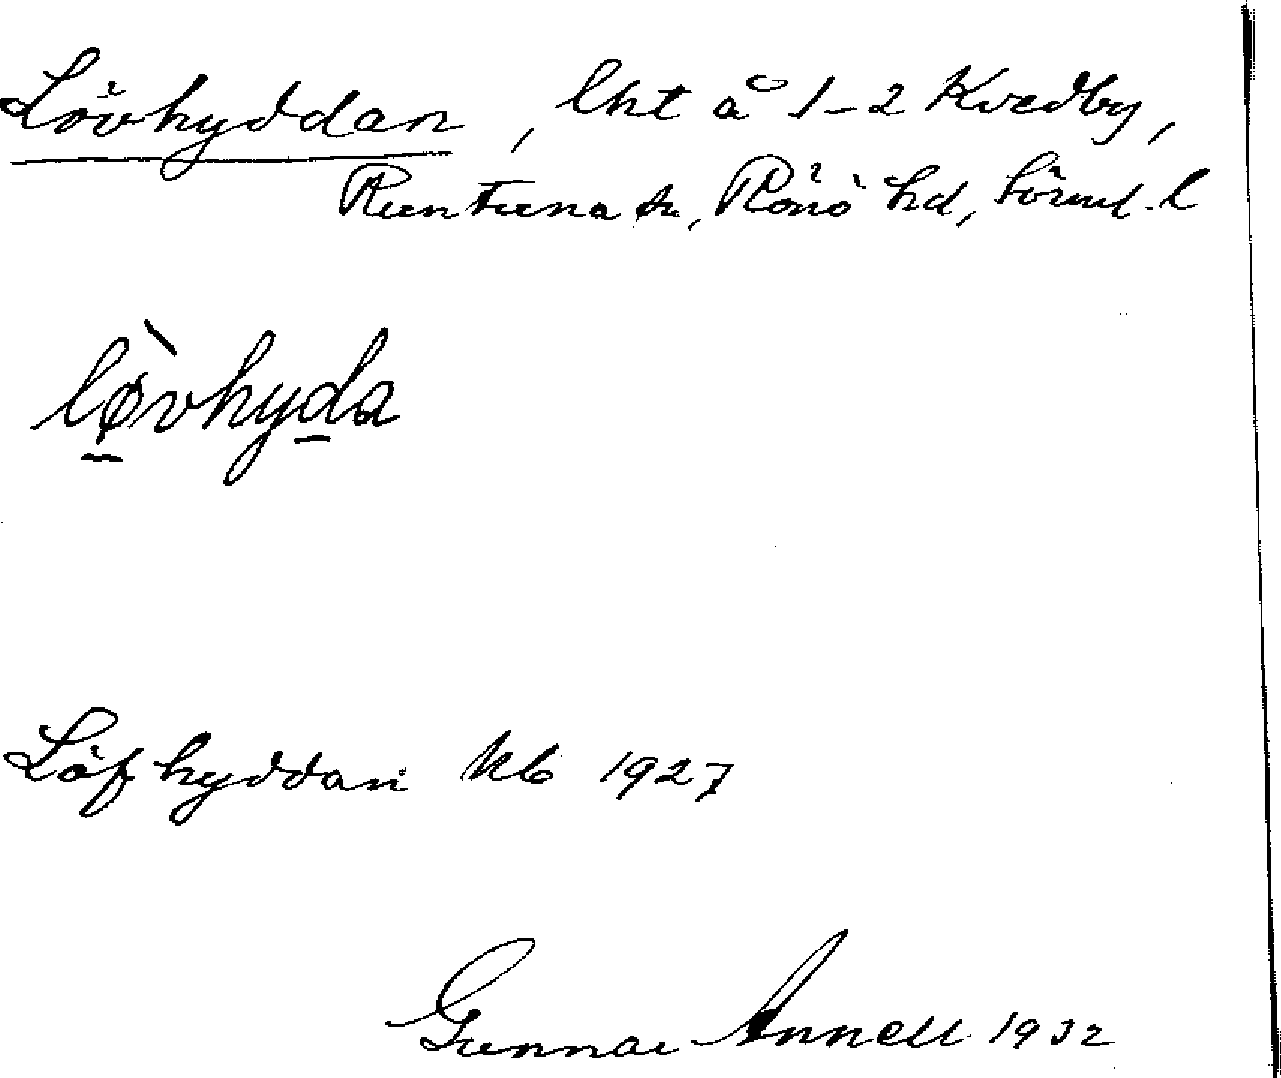 Lövhyddan, lht å 1-2 Kvedby,
Runtuna sn, Rönö hd, Sörml. l
lø̀vhyda
Löfhyddan kb 1927
Gunnar Annell 1932